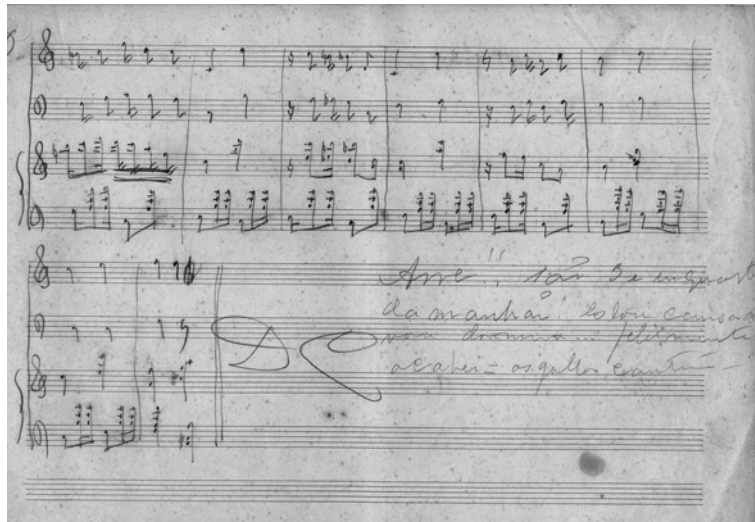 Arre!! são 3 e um quart
da manhan. Estou cansad
vou dormir... felizmente
acabei = os gallos cantam —
D C